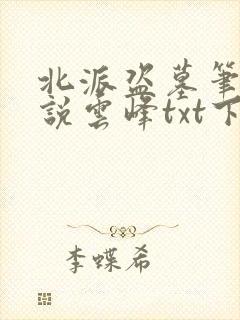 北派盗墓筆
說雲峰txt下
李蝶希